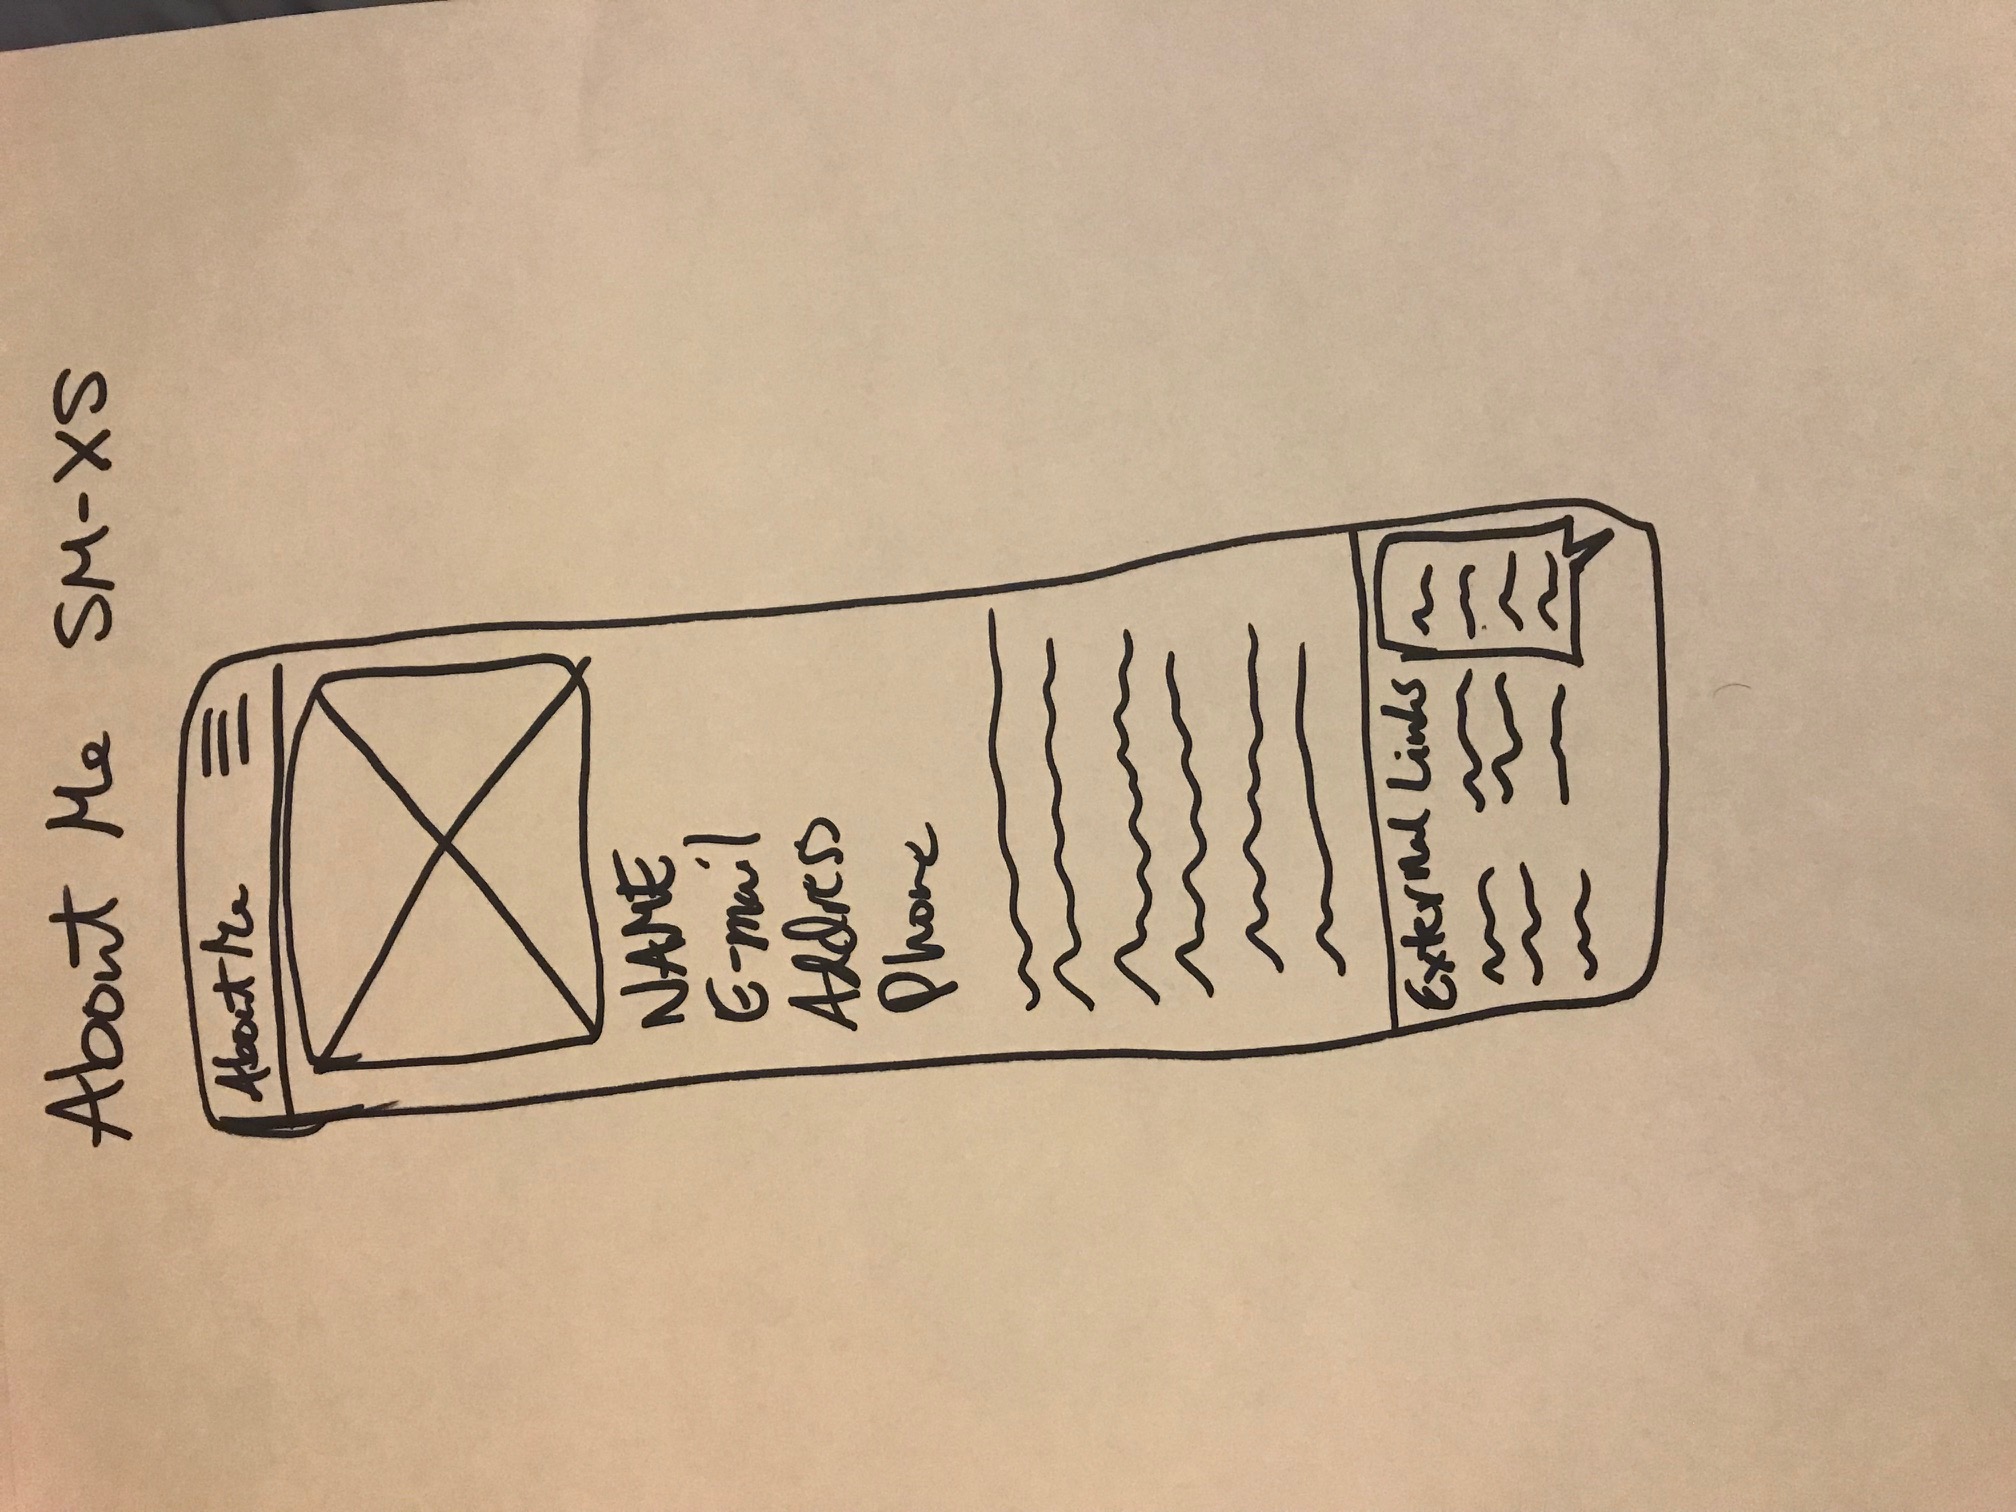 About Me SM-XS
About Me
NAME
E-mail
Address
Phone
External Links